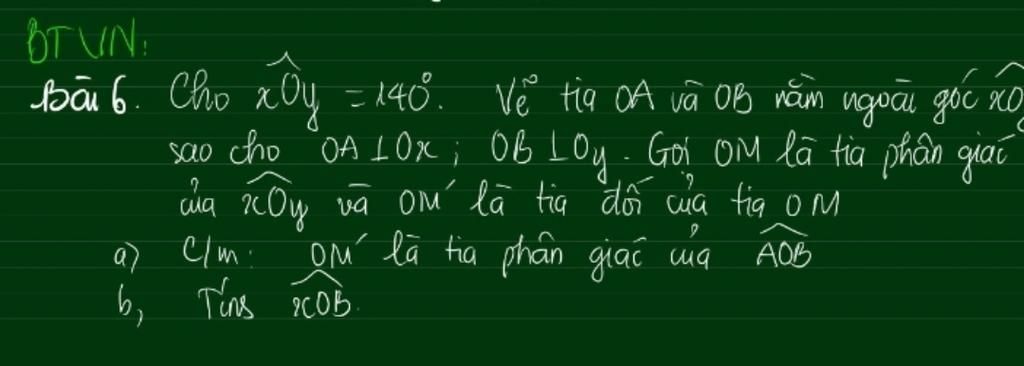 BTVN:
Bài 6. Cho xOy = 140°. Vẽ tia OA và OB nằm ngoài góc xOy
sao cho OA ⊥ Ox; OB ⊥ Oy. Gọi OM là tia phân giác
của xOy và OM' là tia đối của tia OM
a) C/m: OM' là tia phân giác của AOB
b, Tính xOB.